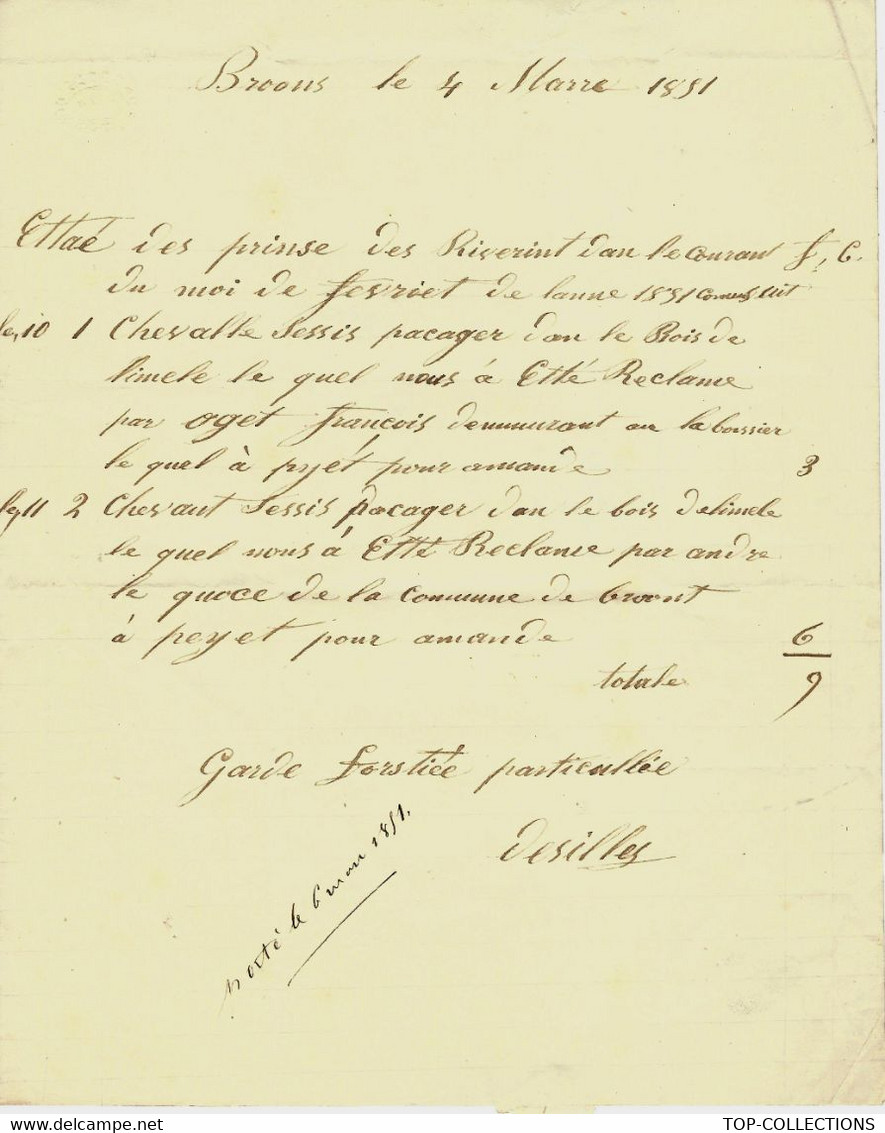 Broons le 4 Marre 1851
Ettaé des prinse des Riverint dan le courant f, C.
du moi de fevriet de lanne 1851 comus suit
le, 10 1 Chevalle Sessis pacager dan le Bois de
limele le quel nous à Etté Reclame
par oget françois demmurant au la boissier
le quel à pyét pour amande 3
le, 11 2 Chevaut Sessis pacager dan le bois delimele
le quel nous à Etté Reclame par andre
le quoce de la Commune de broont
à peyet pour amande 6
totale 9
Garde forstiée particullée
desilles
porté le 6 mars 1851.
TOP-COLLECTIONS